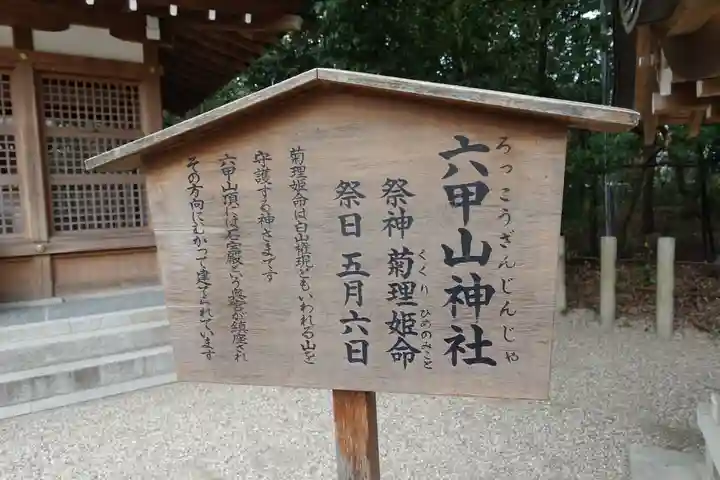 六甲山神社
ろっこうざんじんじゃ
祭神 菊理姫命
くくり ひめのみこと
祭日 五月六日
菊理姫命は白山権現ともいわれる山を
守護する神さまです
六甲山頂には石宝殿という奥宮が鎮座され
その方向にむかって建てられています